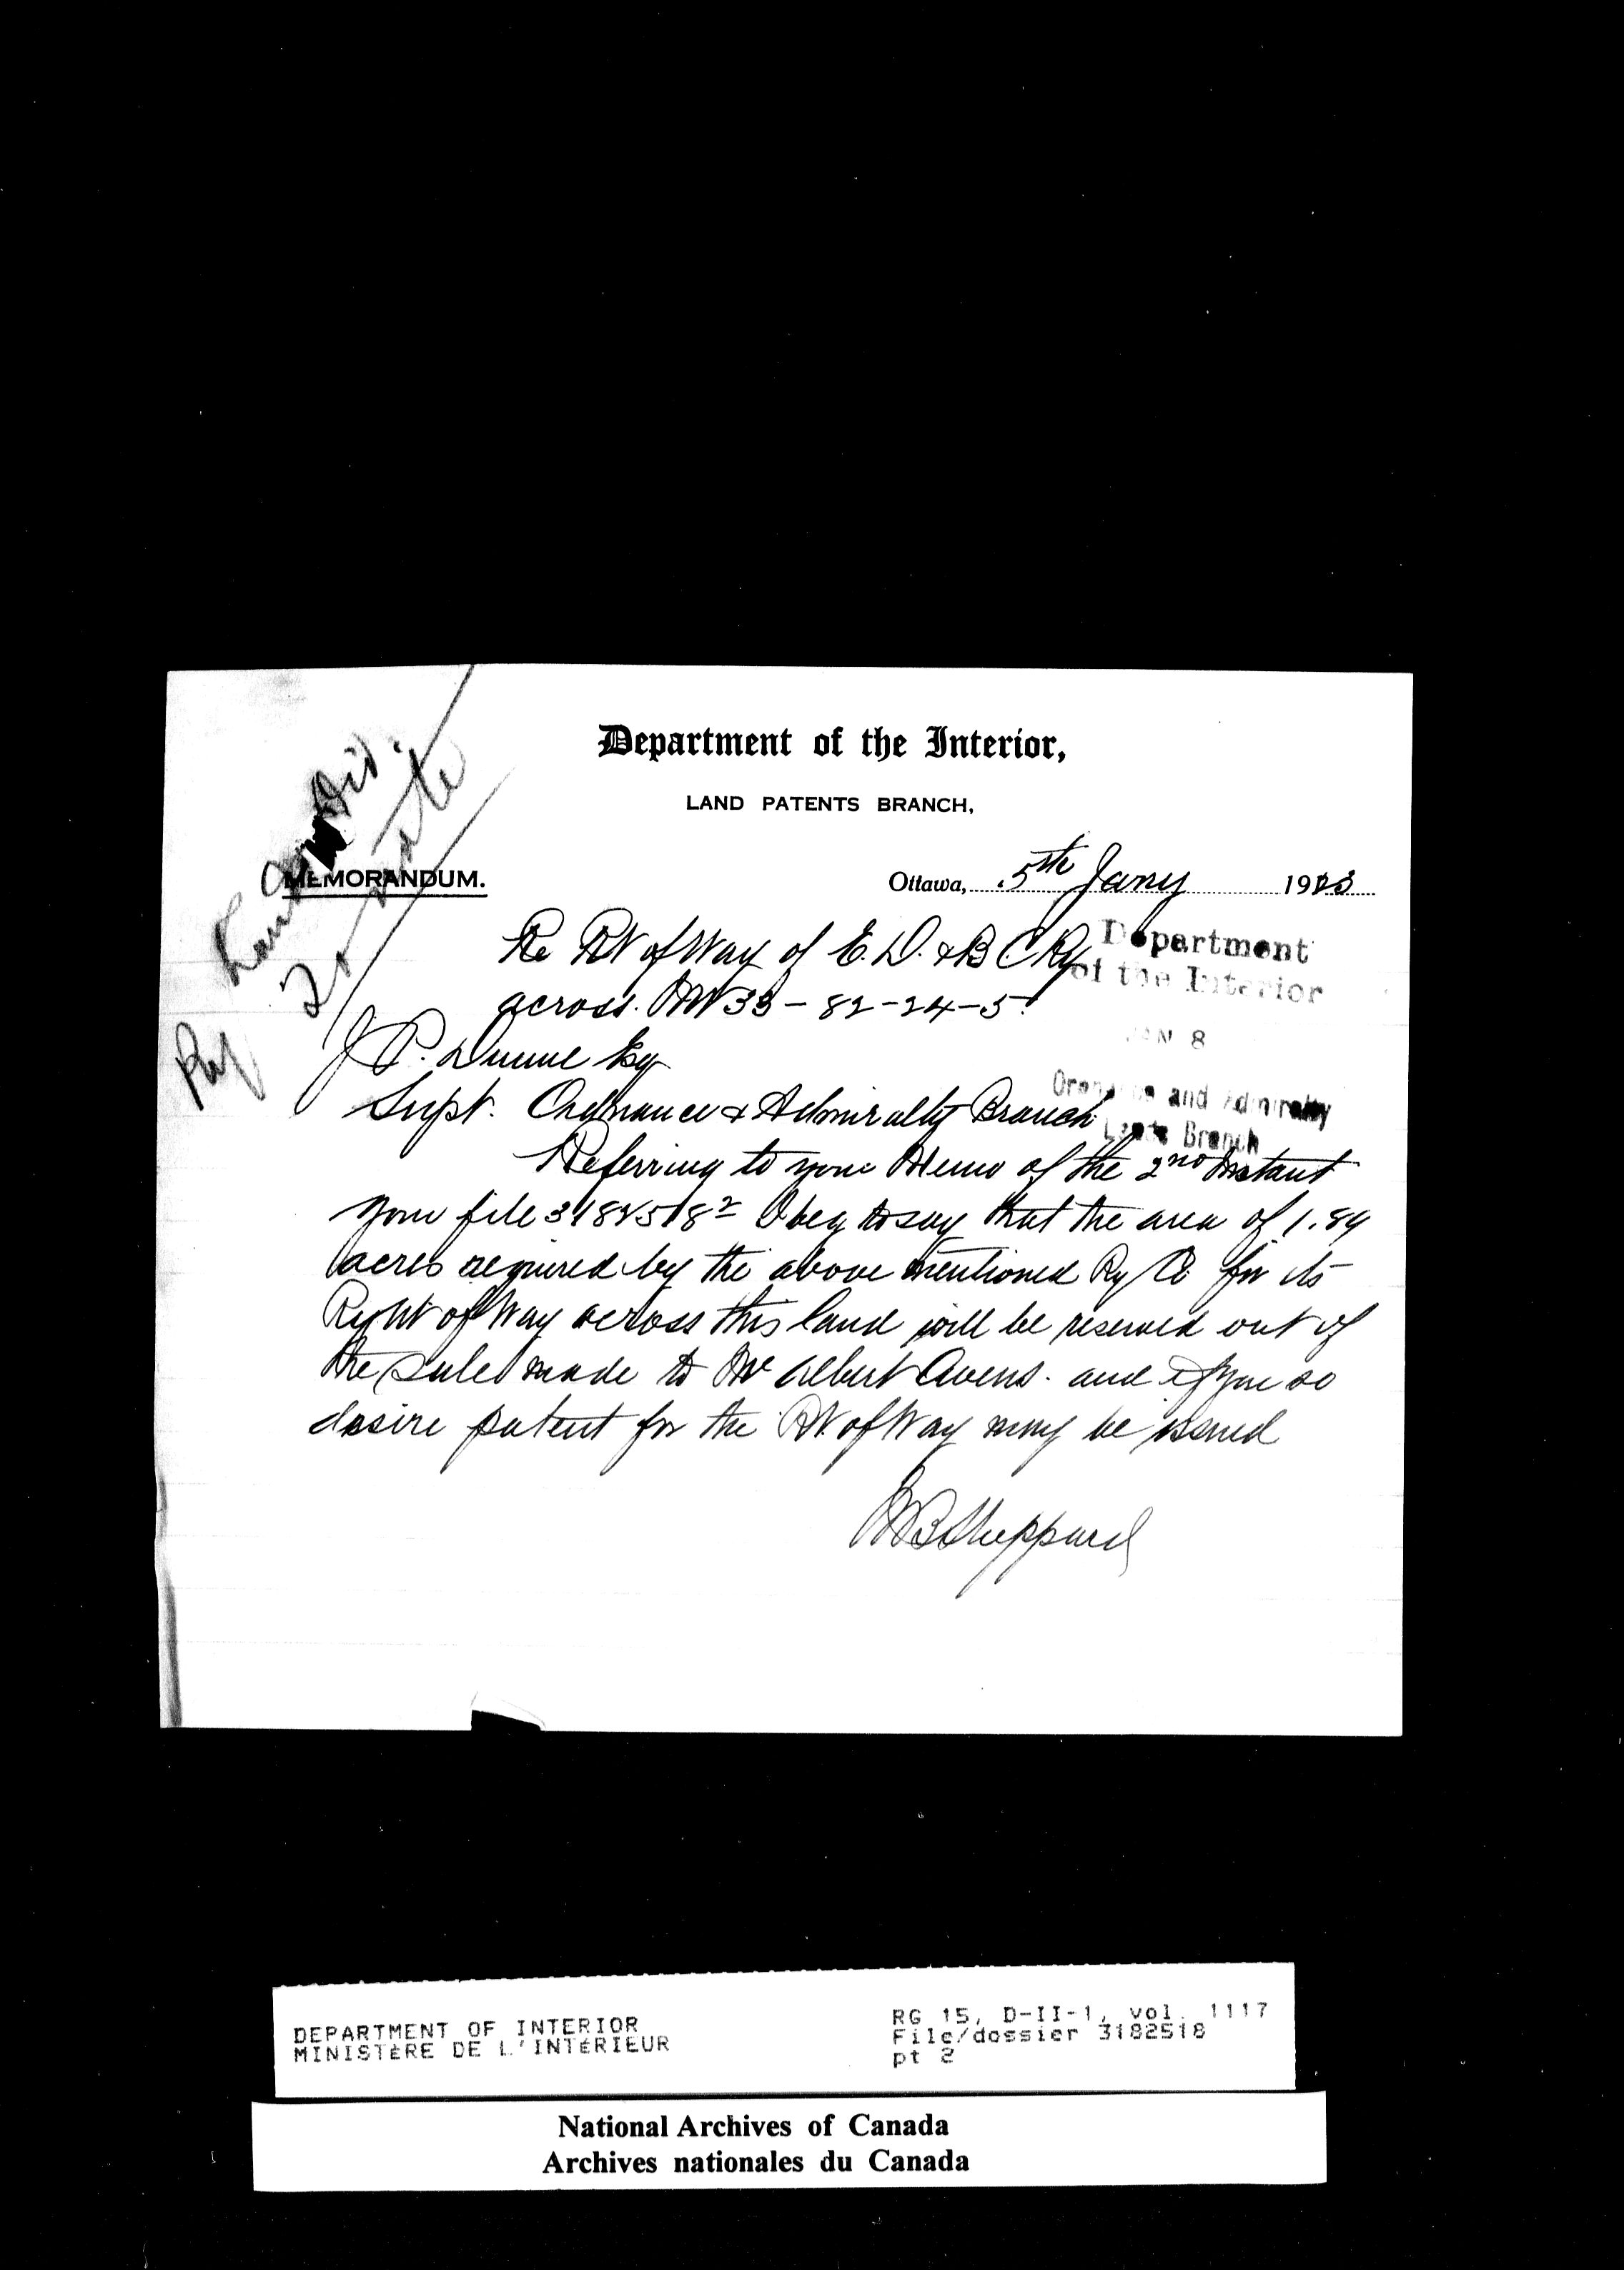 Department of the Interior,
LAND PATENTS BRANCH,
MEMORANDUM.
Ottawa, 5th Jany 1923
Re Rt of Way of E. D. & B C Ry
across NW 33 - 82 - 24 - 5
Department
of the Interior
JAN 8
Ordnance and Admiralty
Lands Branch
J P. Dunne Esq
Supt. Ordnance & Admiralty Branch
Referring to your Memo of the 2nd Instant
your file 3182518² I beg to say that the area of 1.84
acres required by the above mentioned Ry Co for its
Right of Way across this land will be reserved out of
the sale made to Mr Albert Avens. and if you so
desire patent for the Rt. of Way may be issued
Sheppard
DEPARTMENT OF INTERIOR
MINISTÈRE DE L'INTÉRIEUR
RG 15, D-II-1, vol. 1117
File/dossier 3182518
pt 2
National Archives of Canada
Archives nationales du Canada